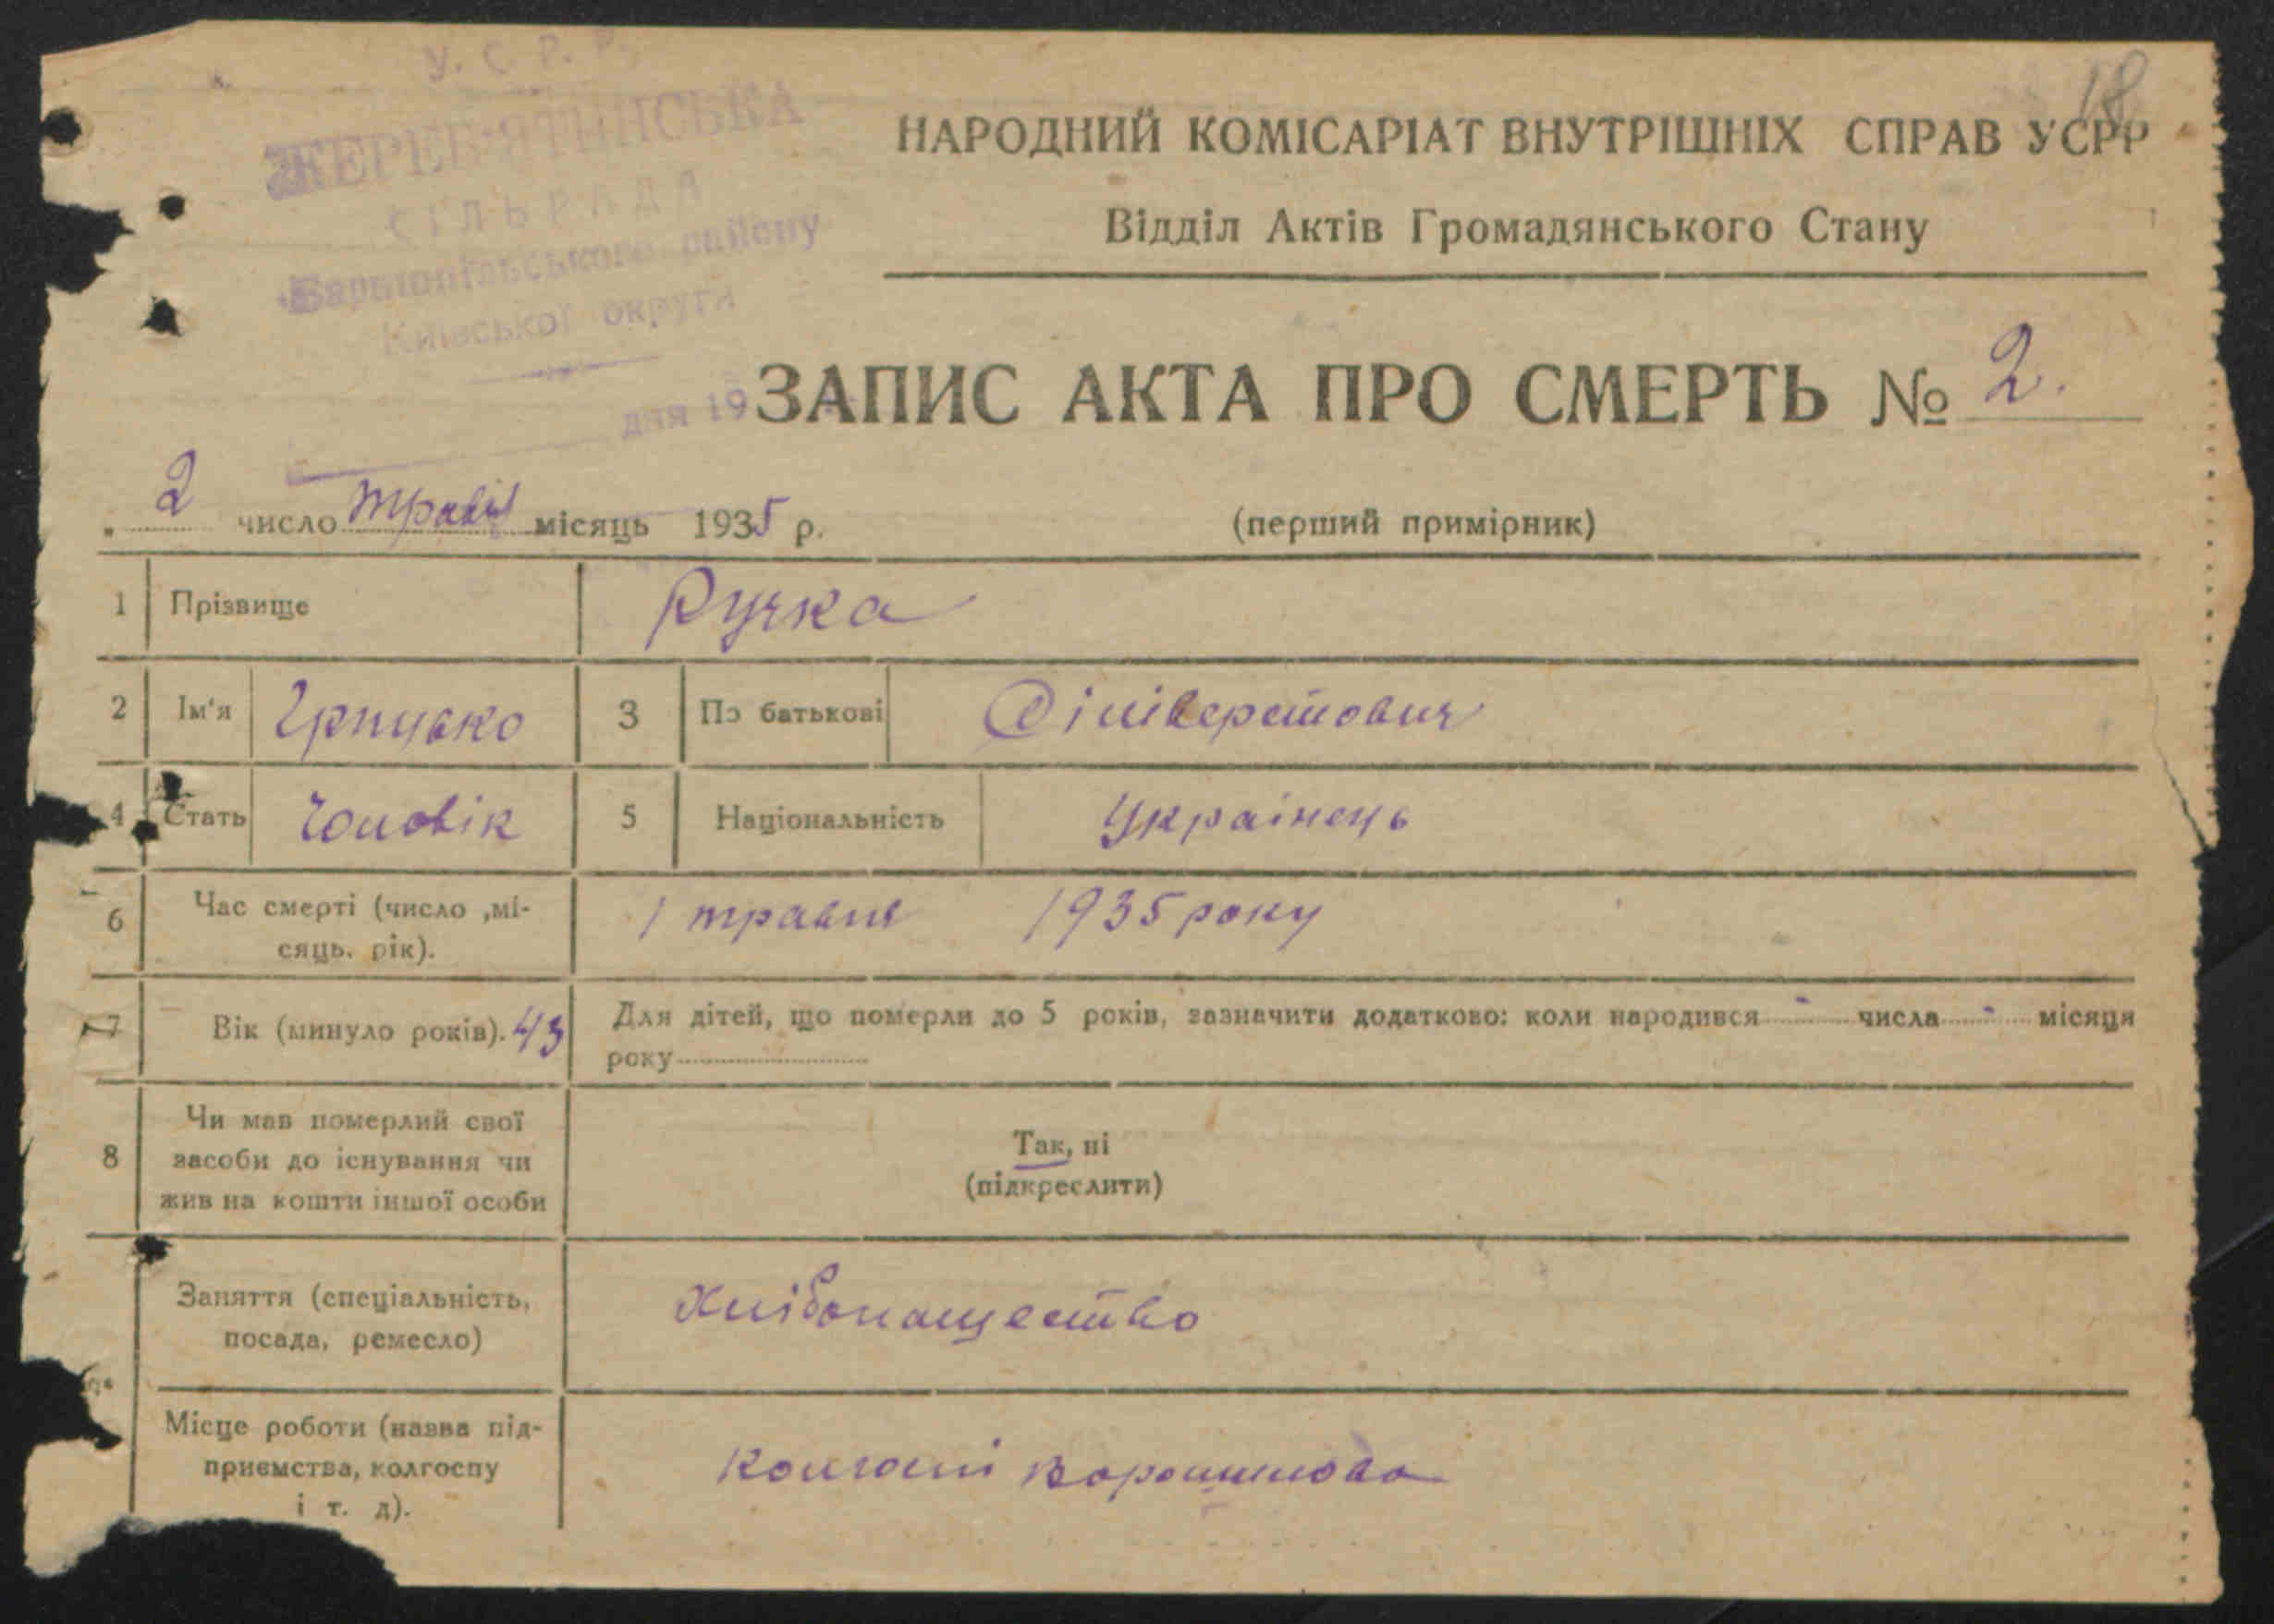 18
У. С. Р. Р.
ЖЕРЕБ'ЯТИНСЬКА
СІЛЬРАДА
Бориспільського району
Київської округи
дня 19
НАРОДНИЙ КОМІСАРІАТ ВНУТРІШНІХ СПРАВ УСРР
Відділ Актів Громадянського Стану
ЗАПИС АКТА ПРО СМЕРТЬ № 2.
„ 2 число травня місяць 1935 р.
(перший примірник)
1 Прізвище Ручка
2 Ім'я 3 По батькові Сілівертович
4 Стать Чоловік 5 Національність Українець
6 Час смерті (число ,мі-
сяць, рік).
1 травня 1935 року
7 Вік (минуло років). 43 Для дітей, що померли до 5 років, зазначити додатково: коли народився - числа - місяця
року
8 Чи мав померлий свої
засоби до існування чи
жив на кошти іншої особи
Так, ні
(підкреслити)
Заняття (спеціальність,
посада, ремесло)
Хлібопащество
Місце роботи (назва під-
приємства, колгоспу
і т. д).
Колгоспі Ворошилова